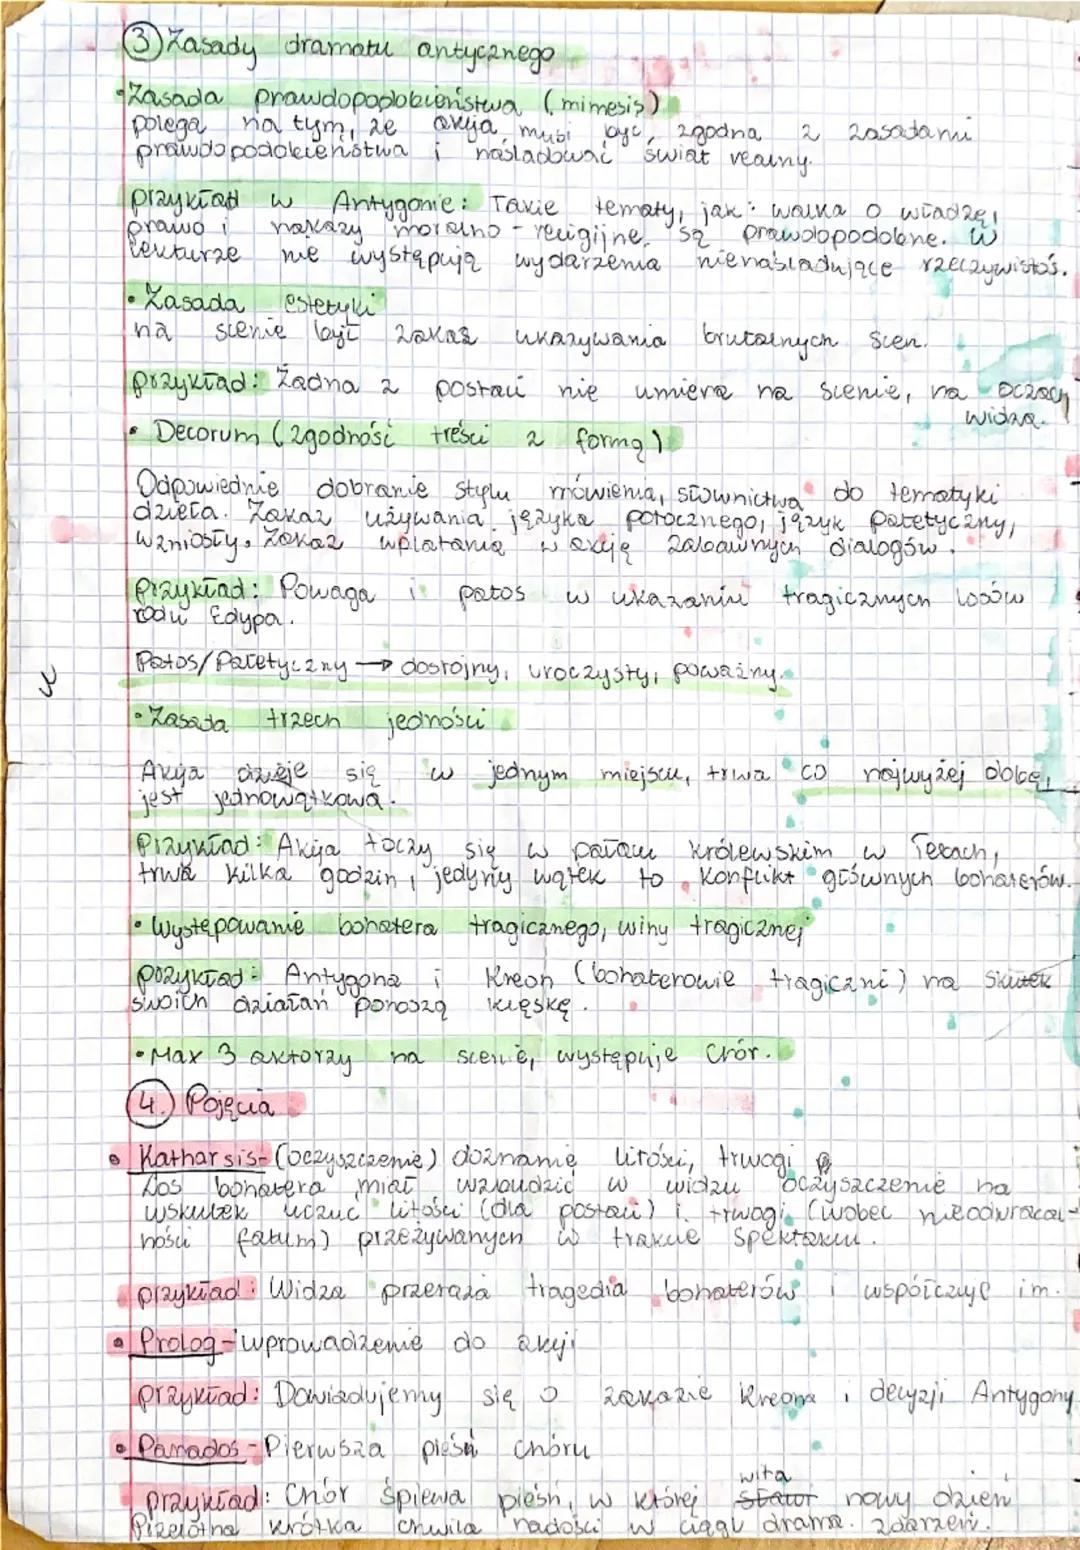 3 Zasady dramatu antycznego
• Zasada prawdopodobieństwa (mimesis)
polega na tym, że akcja musi być zgodna z zasadami
prawdopodobieństwa i naśladować świat realny.
przykład w Antygonie: Takie tematy, jak: walka o władzę,
prawo i nakazy moralno - religijne, są prawdopodobne. W
lekturze nie występują wydarzenia nienaśladujące rzeczywistoś.
• Zasada estetyki
na scenie był zakaz ukazywania brutalnych scen.
przykład: Żadna z postaci nie umiera na scenie, na oczach
widza.
• Decorum (zgodność treści z formą)
Odpowiednie dobranie stylu mówienia, słownictwa do tematyki
dzieła. Zakaz używania języka potocznego, język patetyczny,
wzniosły. Zakaz wplatania w akcję zabawnych dialogów.
przykład: Powaga i patos w ukazaniu tragicznych losów
rodu Edypa.
Patos/Patetyczny → dostojny, uroczysty, poważny.
• Zasada trzech jedności
Akcja dzieje się w jednym miejscu, trwa co najwyżej dobę,
jest jednowątkowa.
Przykład: Akcja toczy się w pałacu królewskim w Tebach,
trwa kilka godzin, jedyny wątek to konflikt głównych bohaterów.
• Występowanie bohatera tragicznego, winy tragicznej
przykład: Antygona i Kreon (bohaterowie tragiczni) na skutek
swoich działań ponoszą klęskę.
• Max 3 aktorzy na scenie, występuje Chór.
4. Pojęcia
• Katharsis - (oczyszczenie) doznanie litości, trwogi
Los bohatera miał wzbudzić w widzu oczyszczenie na
wskutek uczuć litości (dla postaci) i trwogi (wobec nieodwracal-
ności fatum) przeżywanych w trakcie spektaklu.
przykład: Widza przeraża tragedia bohaterów i współczuje im.
• Prolog - wprowadzenie do akcji
przykład: Dowiadujemy się o zakazie Kreona i decyzji Antygony
• Parrados - Pierwsza pieśń chóru
wita
przykład: Chór śpiewa pieśń, w której nowy dzień
Przelotna krótka chwila radości w ciągu drama. zdarzeń.